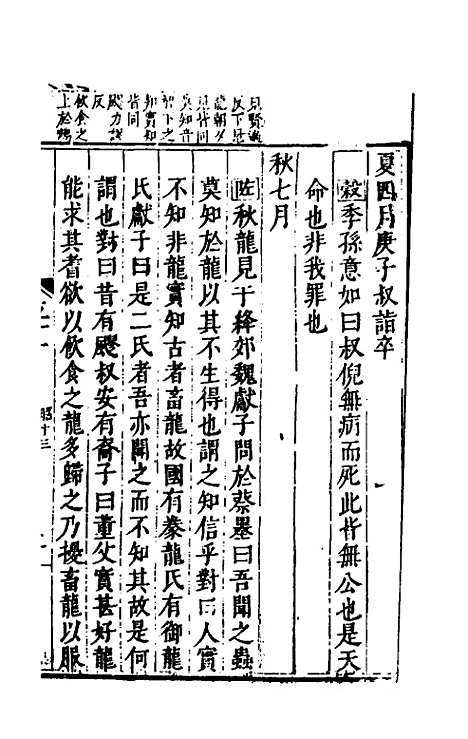 見賢遍
反下見
龍朝夕
見皆同
莫知音
智下之
知實知
皆同
飂力謬
反
飲食之
上於鴆
夏四月庚子叔詣卒
穀季孫意如曰叔倪無病而死此皆無公也是天
命也非我罪也
秋七月
左秋龍見于絳郊魏獻子問於蔡墨曰吾聞之蟲
莫知於龍以其不生得也謂之知信乎對曰人實
不知非龍實知古者畜龍故國有豢龍氏有御龍
氏獻子曰是二氏者吾亦聞之而不知其故是何
謂也對曰昔有飂叔安有裔子曰董父實甚好龍
能求其耆欲以飮食之龍多歸之乃擾畜龍以服
昭十三